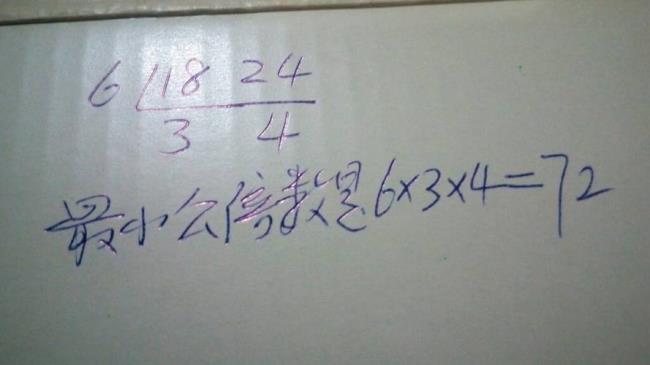 6 18 24
3 4
最小公倍数是6×3×4=72